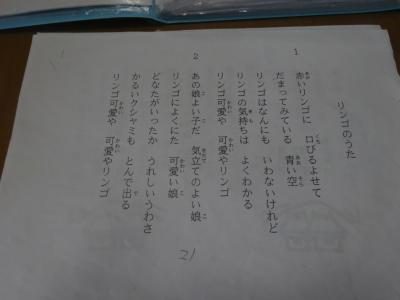 リンゴのうた
1
赤いリンゴに 口びるよせて
だまってみている 青い空
リンゴはなんにも いわないけれど
リンゴの気持ちは よくわかる
リンゴ可愛や 可愛やリンゴ
2
あの娘よい子だ 気立てのよい娘
リンゴによくにた 可愛い娘
どなたがいったか うれしいうわさ
かるいクシャミも とんで出る
リンゴ可愛や 可愛やリンゴ
21